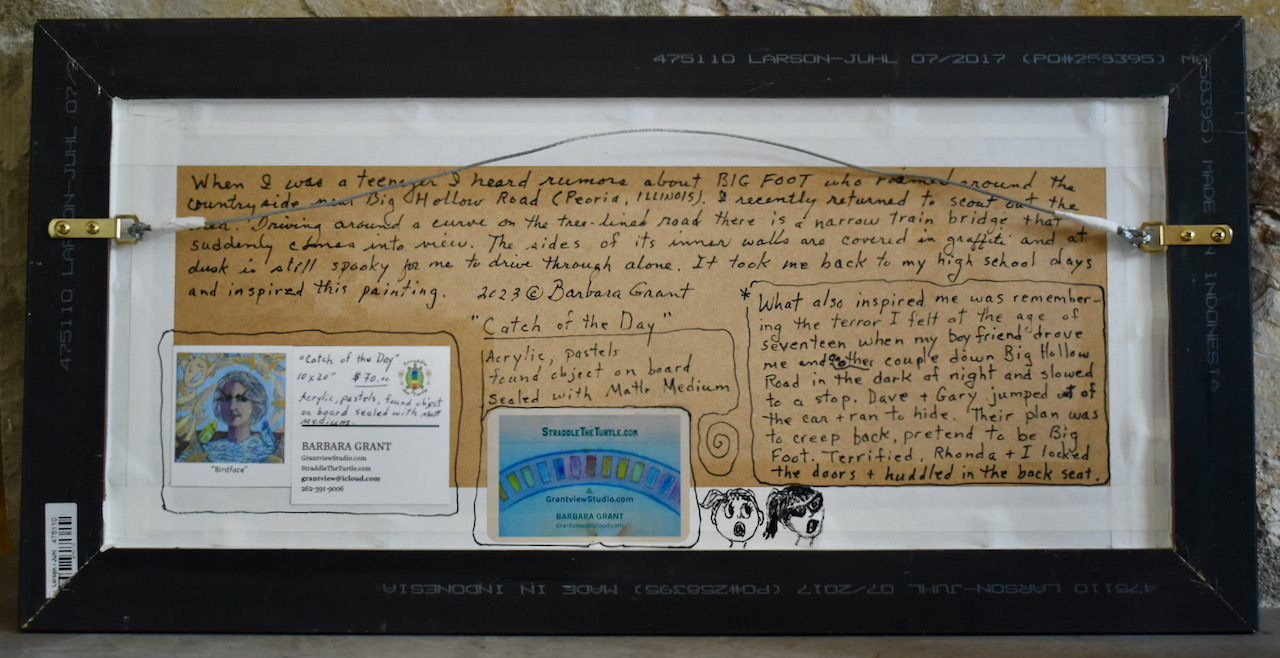 475110 LARSON-JUHL 07/2017 (PO#258395) M
When I was a teenager I heard rumors about BIG FOOT who roamed around the
countryside near Big Hollow Road (Peoria, ILLINOIS). I recently returned to scout out the
area. Driving around a curve on the tree-lined road there is a narrow train bridge that
suddenly comes into view. The sides of its inner walls are covered in graffiti and at
dusk is still spooky for me to drive through alone. It took me back to my high school days
and inspired this painting. 2023 © Barbara Grant
"Catch of the Day"
Acrylic, pastels
found object on board
sealed with Matte Medium
* What also inspired me was remember-
ing the terror I felt at the age of
seventeen when my boyfriend drove
me and another couple down Big Hollow
Road in the dark of night and slowed
to a stop. Dave + Gary jumped out of
the car + ran to hide. Their plan was
to creep back, pretend to be Big
Foot. Terrified, Rhonda + I locked
the doors + huddled in the back seat.
"Birdface"
"Catch of the Day"
10x20" $70.00
Acrylic, pastels, found object
on board sealed with matt
medium.
BARBARA GRANT
GrantviewStudio.com
StraddleTheTurtle.com
grantview@icloud.com
262-391-9006
STRADDLETHETURTLE.COM
&
GrantviewStudio.com
BARBARA GRANT
Grantview@icloud.com
475110 LARSON-JUHL 07/2
58395) MADE IN INDONESIA
Larson-Juhl 475110
475110 LARSON-JUHL 07/2017 (PO#258395) MADE IN INDONESIA